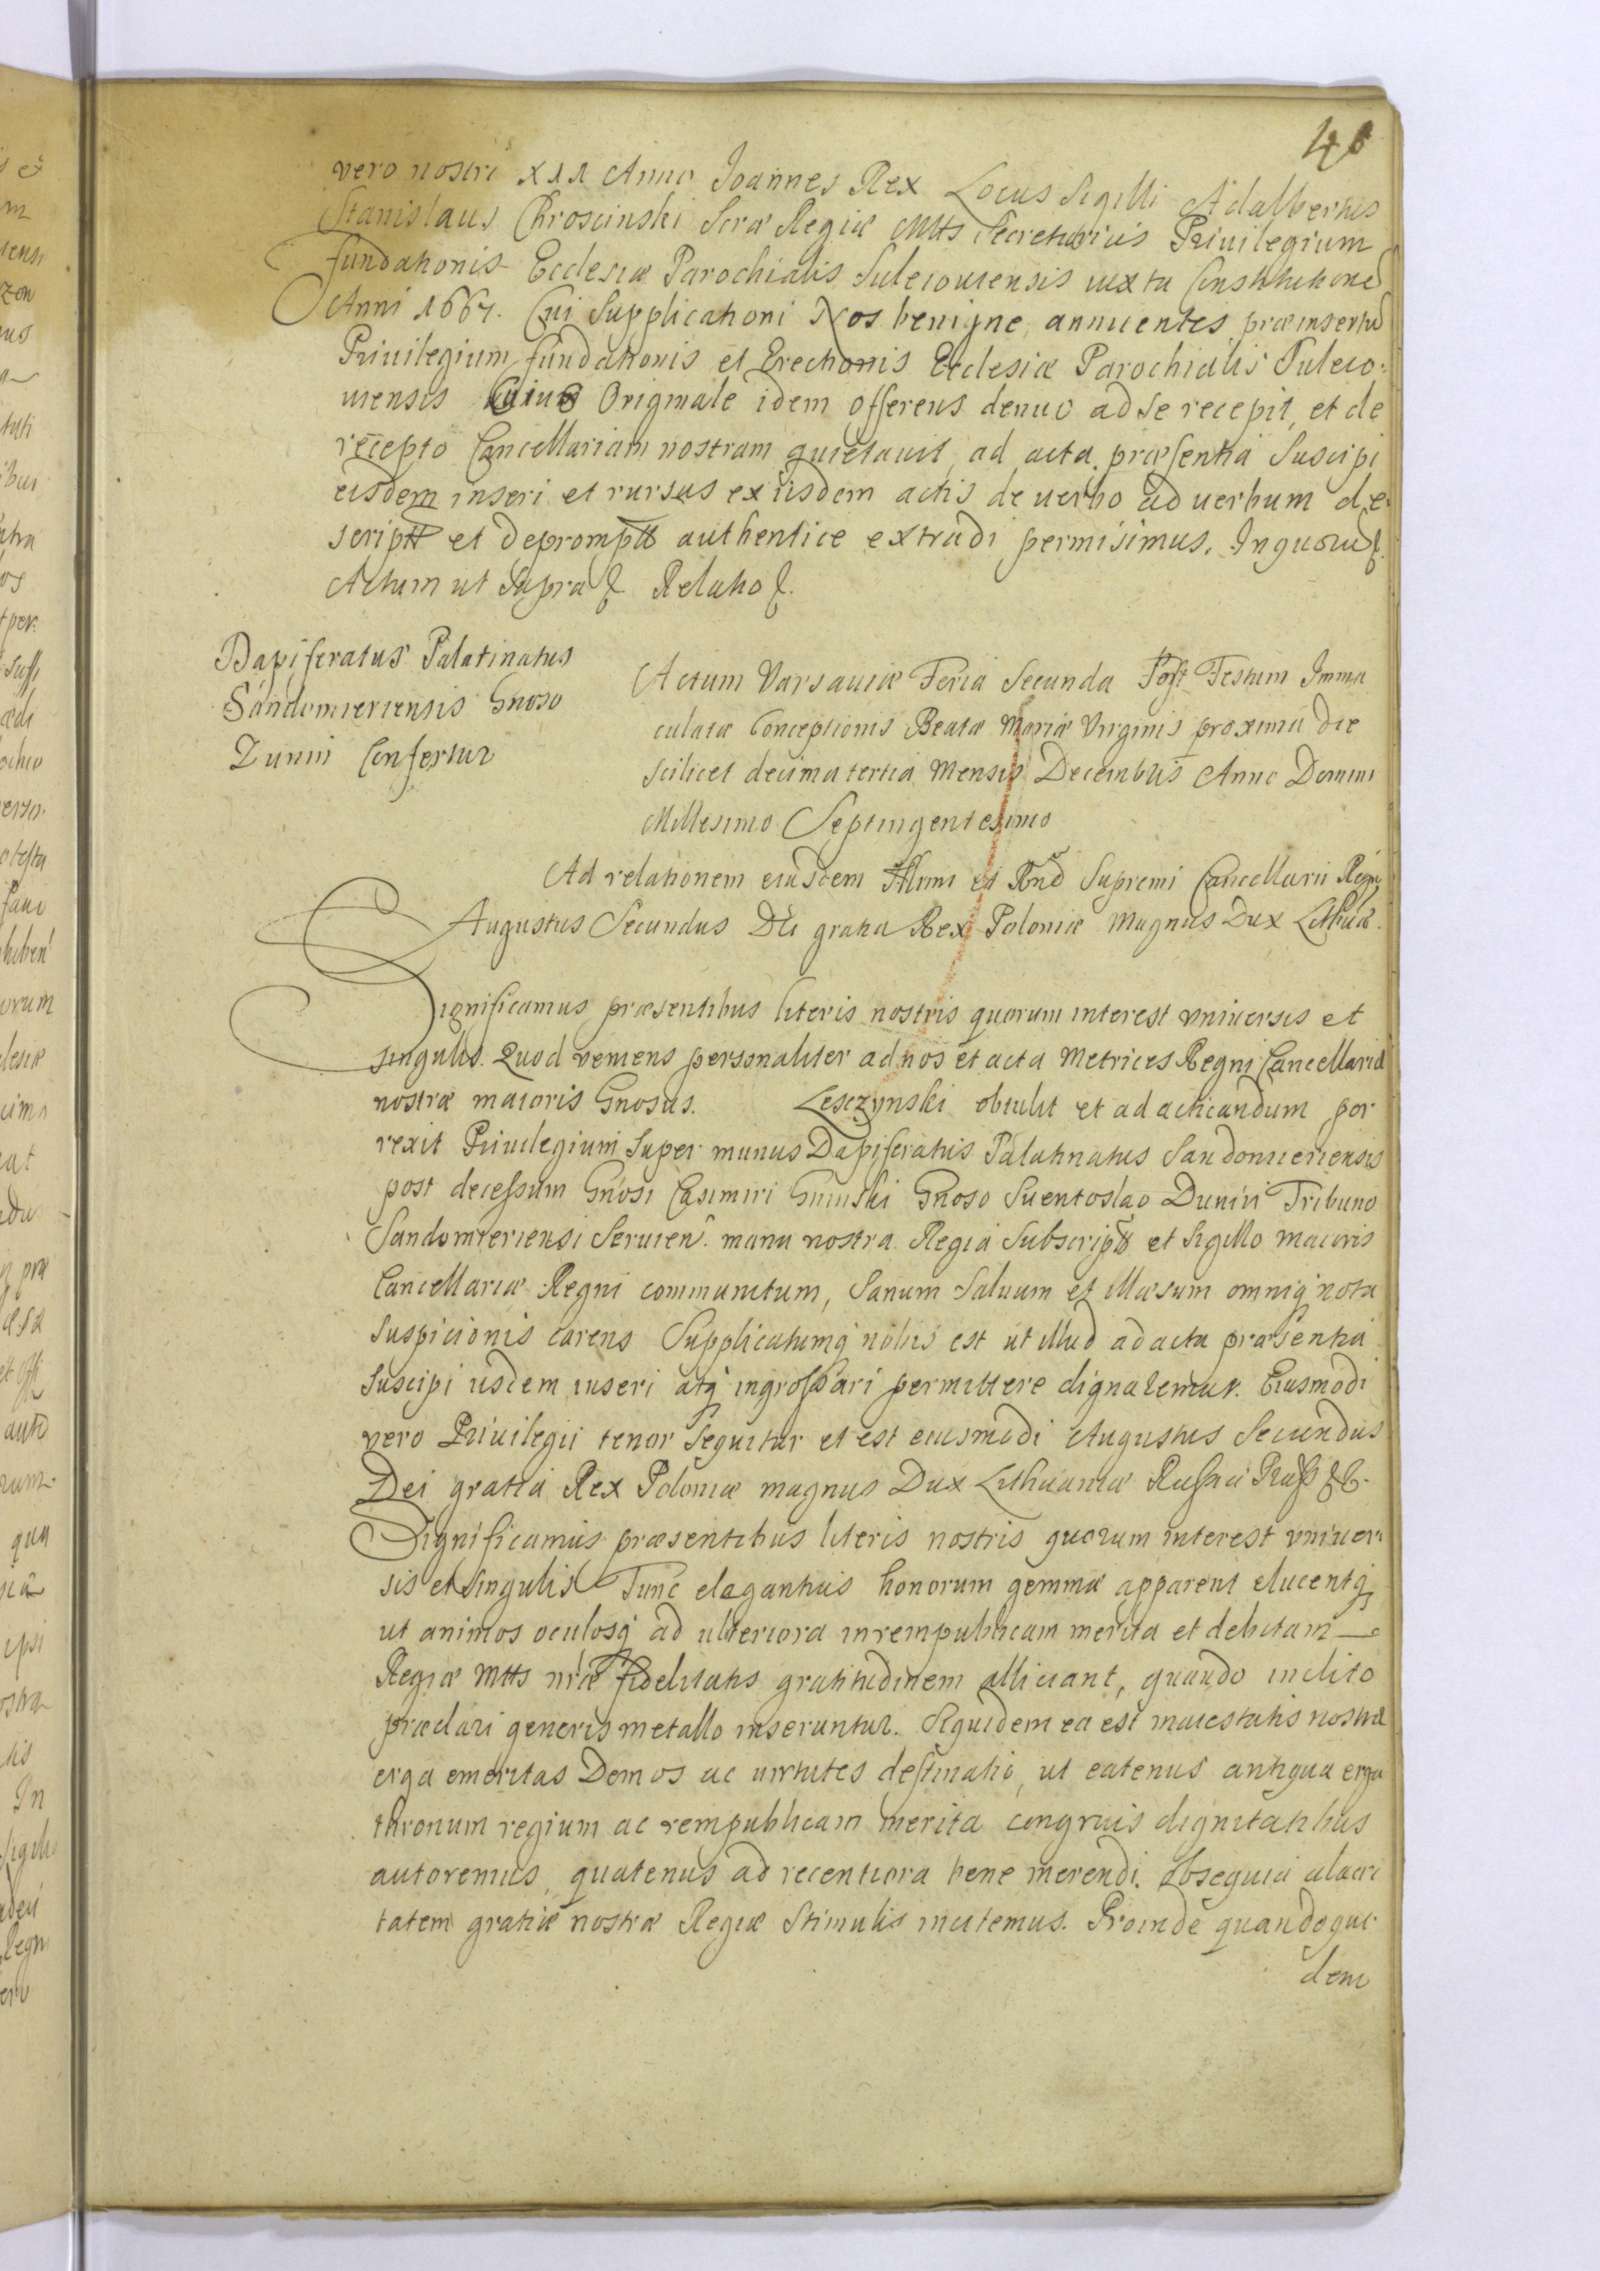 40
vero nostri XIX Anno Joannes Rex Locus Sigilli Adalbertus
Stanislaus Chroscinski Scræ Regiæ Mttis Secretarius Privilegium
fundationis Ecclesiæ Parochialis Suleiouiensis iuxta Constitutione
Anni 1667. Cui Supplicationi Nos benigne annuentes præinsertu
Priuilegium fundationis et Erectionis Ecclesiæ Parochialis Suleio:
uiensis Cuius Originale idem offerens denuo ad se recepit, et de
recepto Cancellariam nostram quietauit, ad acta præsentia Suscipi
eisdem inseri et rursus ex iisdem actis de uerbo ad uerbum de
script et deprompt authentice extradi permisimus. In quoru &.
Actum ut Supra &. Relatio &.
Dapiferatus Palatinatus
Sandomiriensis Gnoso
Dunin Confertur
Actum Varsauiæ Feria Secunda Post Festum Imma
culatæ Conceptionis Beatæ Mariæ Virginis proxima die
Scilicet decima tertia Mensis Decembris Anno Domini
Millesimo Septingentesimo
Ad relationem eiusdem Illrmi et Rnd Supremi Cancellarii Regni
Augustus Secundus Dei gratia Rex Poloniæ Magnus Dux Lithuæ.
Significamus præsentibus literis nostris quorum interest vniuersis et
singulis. Quod veniens personaliter ad nos et acta Metrices Regni Cancellariæ
nostræ maioris Gnosus. Lesczynski obtulit et ad acticandum por
rexit Priuilegium Super munus Dapiferatus Palatinatus Sandomieriensis
post decessum Gnosi Casimiri Gninski Gnoso Suentoslao Dunin Tribuno
Sandomieriensi Seruien. manu nostra Regia Subscript et Sigillo maioris
Cancellariæ Regni communitum, Sanum Saluum et illæsum omniq nota
Suspicionis carens Supplicatumq nobis est ut illud ad acta præsentia
Suscipi iisdem inseri atq ingrossari permittere dignaremur. Eiusmodi
vero Priuilegii tenor Sequitur et est eiusmodi Augustus Secundus
Dei gratia Rex Poloniæ magnus Dux Lithuaniæ Russiæ Pruss &&.
Significamus præsentibus literis nostris quorum interest vniuer:
sis et singulis Tunc elegantius honorum gemmæ apparent elucentq
ut animos oculosq ad ulteriora in rempublicam merita et debitam
Regiæ Mttis nræ fidelitatis gratitudinem alliciant, quando inclito
præclari generis metallo inseruntur. Siquidem ea est maiestatis nostræ
erga emeritas Domos ac uirtutes destinatio, ut eatenus antiqua erga
thronum regium ac rempublicam merita congruis dignitatibus
autoremus, quatenus ad recentiora bene merendi. obsequia alacri
tatem gratiæ nostræ Regiæ Stimulis incitemus. Proinde quandoqui
dem